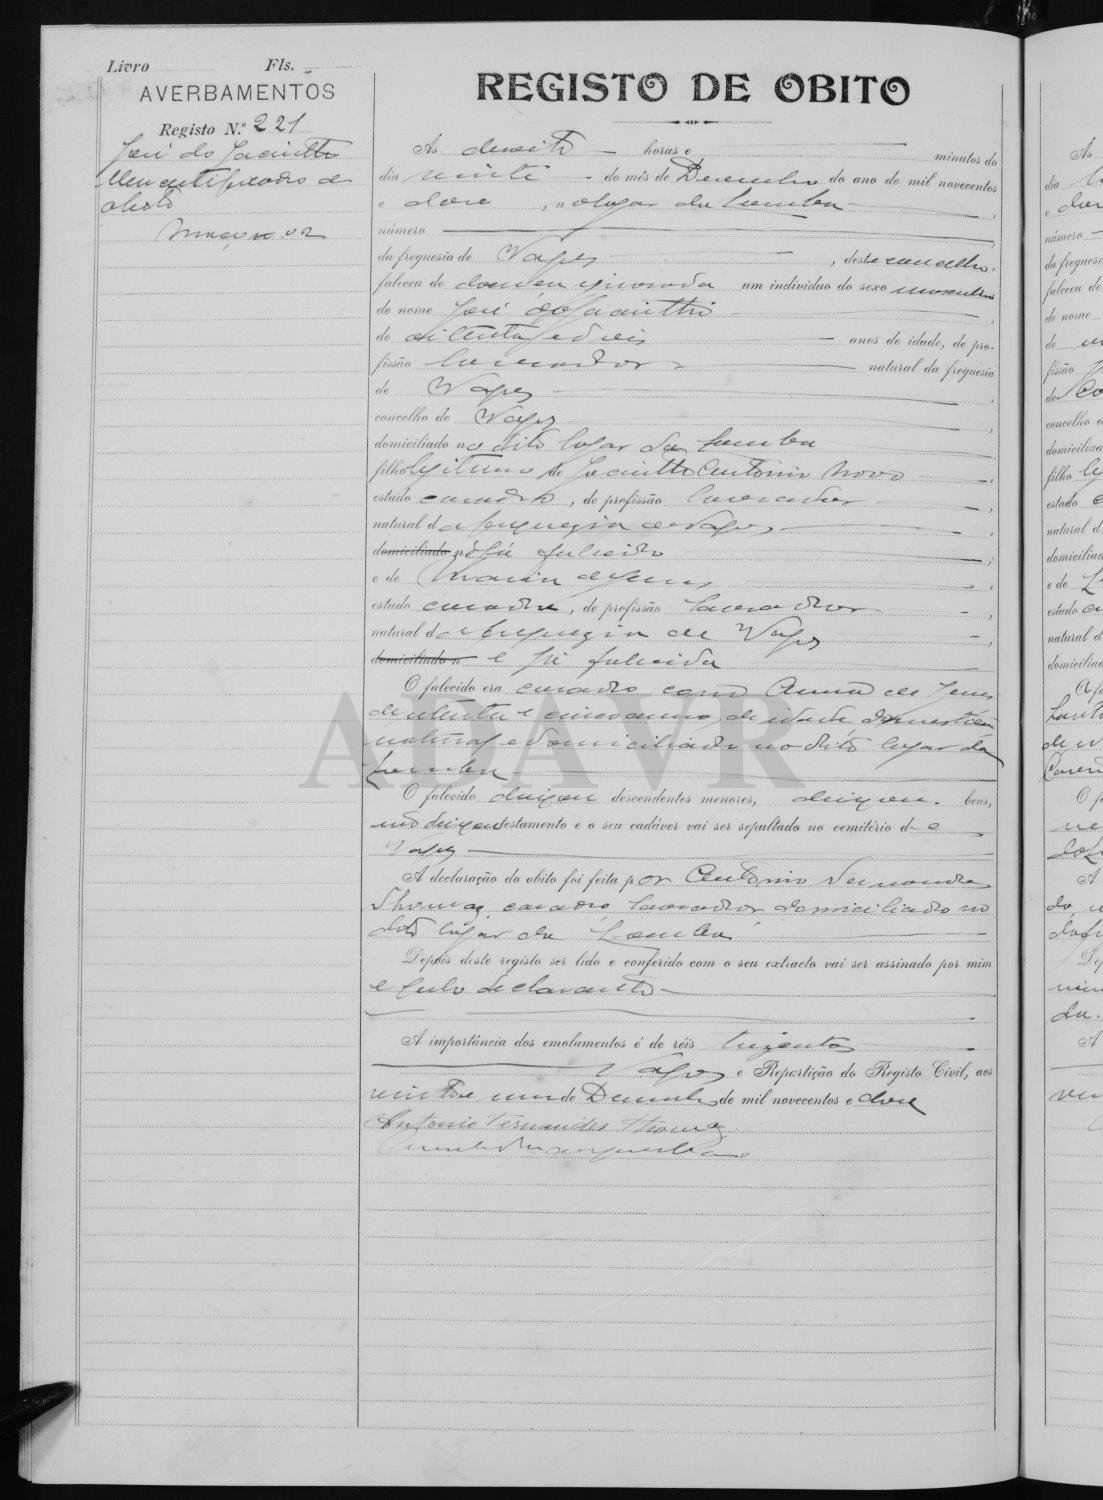 Livro Fls.
AVERBAMENTOS
Registo N.º 221
José do Jacintho
obito
REGISTO DE OBITO
Ás dezoito horas e minutos do
dia vinte do mês de Dezembro do ano de mil novecentos
e doze, no logar da Lomba,
número
da freguesia de Vagos, deste concelho,
faleceu de doença ignorada um individuo do sexo masculino
de nome José do Jacintho,
de oitenta e dois anos de idade, de pro-
fissão lavrador natural da freguesia
de Vagos,
concelho de Vagos,
domiciliado no dito logar da Lomba
filho legitimo de Jacintho Antonio Novo,
estado casado, de profissão lavrador,
natural da freguezia de Vagos,
domiciliado n já falecido;
e de Maria de Jesus,
estado casada, de profissão lavradora,
natural da freguezia de Vagos,
domiciliado n e já falecida
O falecido era casado com Anna de Jesus
de setenta e cinco annos de idade domestica
natural e domiciliada no dito logar da
Lomba
O falecido deixou descendentes menores, deixou bens,
não deixou testamento e o seu cadáver vai ser sepultado no cemitério de
Vagos
A declaração do obito foi feita por Antonio Fernandes
Thomaz, casado, lavrador domiciliado no
dito logar da Lomba
Depois deste registo ser lido e conferido com o seu extracto vai ser assinado por mim
e pelo declarante
A importância dos emolumentos é de réis trezentos
Vagos e Repartição do Registo Civil, aos
vinte e um de Dezembro de mil novecentos e doze
Antonio Fernandes Thomaz
ADAVR